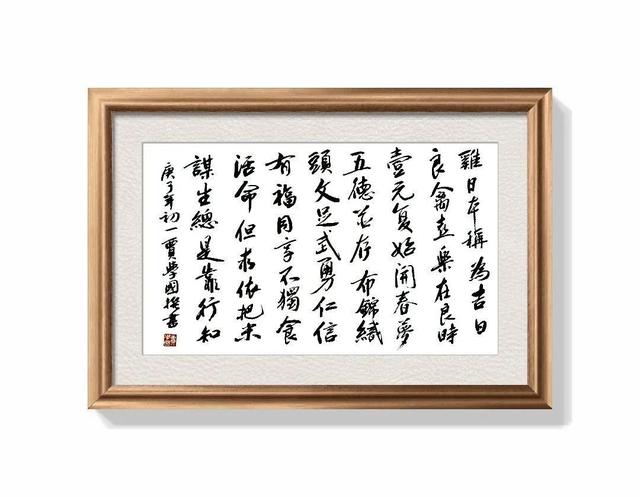 雞日本稱為吉日
良禽喜樂在良時
壹元复始開春夢
五德並存布錦織
頭文足武勇仁信
有福同享不獨食
活命但求依把米
謀生總是靠行知
庚子年初一賈學國撰書